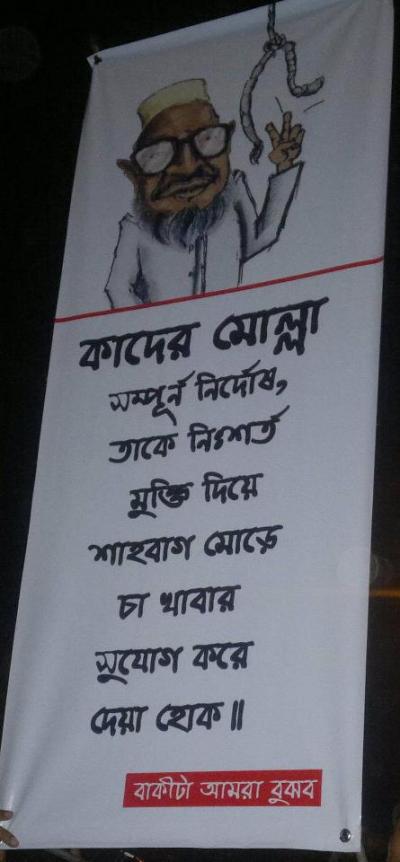 কাদের মোল্লা
সম্পূর্ন নির্দোষ,
তাকে নিঃশর্ত
মুক্তি দিয়ে
শাহবাগ মোড়ে
চা খাবার
সুযোগ করে
দেয়া হোক॥
বাকীটা আমরা বুঝব